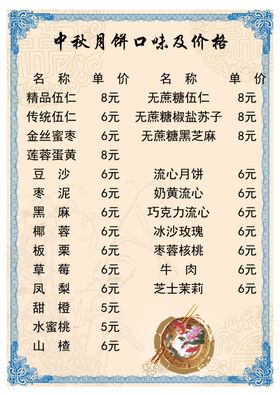 中秋月饼口味及价格
名 称 单 价 名 称 单 价
精品伍仁 8元 无蔗糖伍仁 8元
传统伍仁 6元 无蔗糖椒盐苏子 8元
金丝蜜枣 6元 无蔗糖黑芝麻 8元
莲蓉蛋黄 8元
豆 沙 6元 流心月饼 6元
枣 泥 6元 奶黄流心 6元
黑 麻 6元 巧克力流心 6元
椰 蓉 6元 冰沙玫瑰 6元
板 栗 6元 枣蓉核桃 6元
草 莓 6元 牛 肉 6元
凤 梨 6元 芝士茉莉 6元
甜 橙 5元
水蜜桃 5元
山 楂 6元